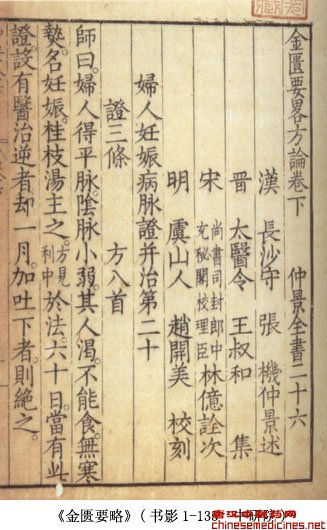 金匱要畧方論卷下 仲景全書二十六
漢 長沙守 張 機仲景述
晉 太醫令 王叔和 集
宋 尚書司封郎中充秘閣校理臣林億詮次
明 虞山人 趙開美 校刻
婦人妊娠病脉證并治第二十
證三條 方八首
師曰婦人得平脉。陰脉小弱。其人渴。不能食。無寒
熱。名妊娠。桂枝湯主之。方見利中於法。六十日當有此
證。設有醫治逆者。却一月。加吐下者。則絶之。
《金匮要略》（书影1-13
chinesemedicines.net